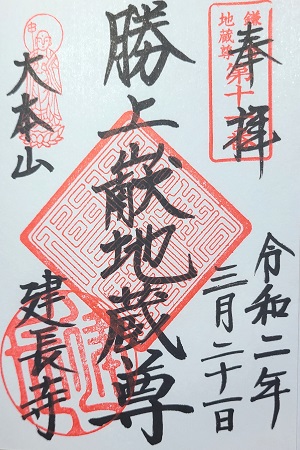 奉拝
鎌倉
地蔵尊
第十一番
令和二年
三月二十一日
勝上嶽地蔵尊
大本山
建長寺